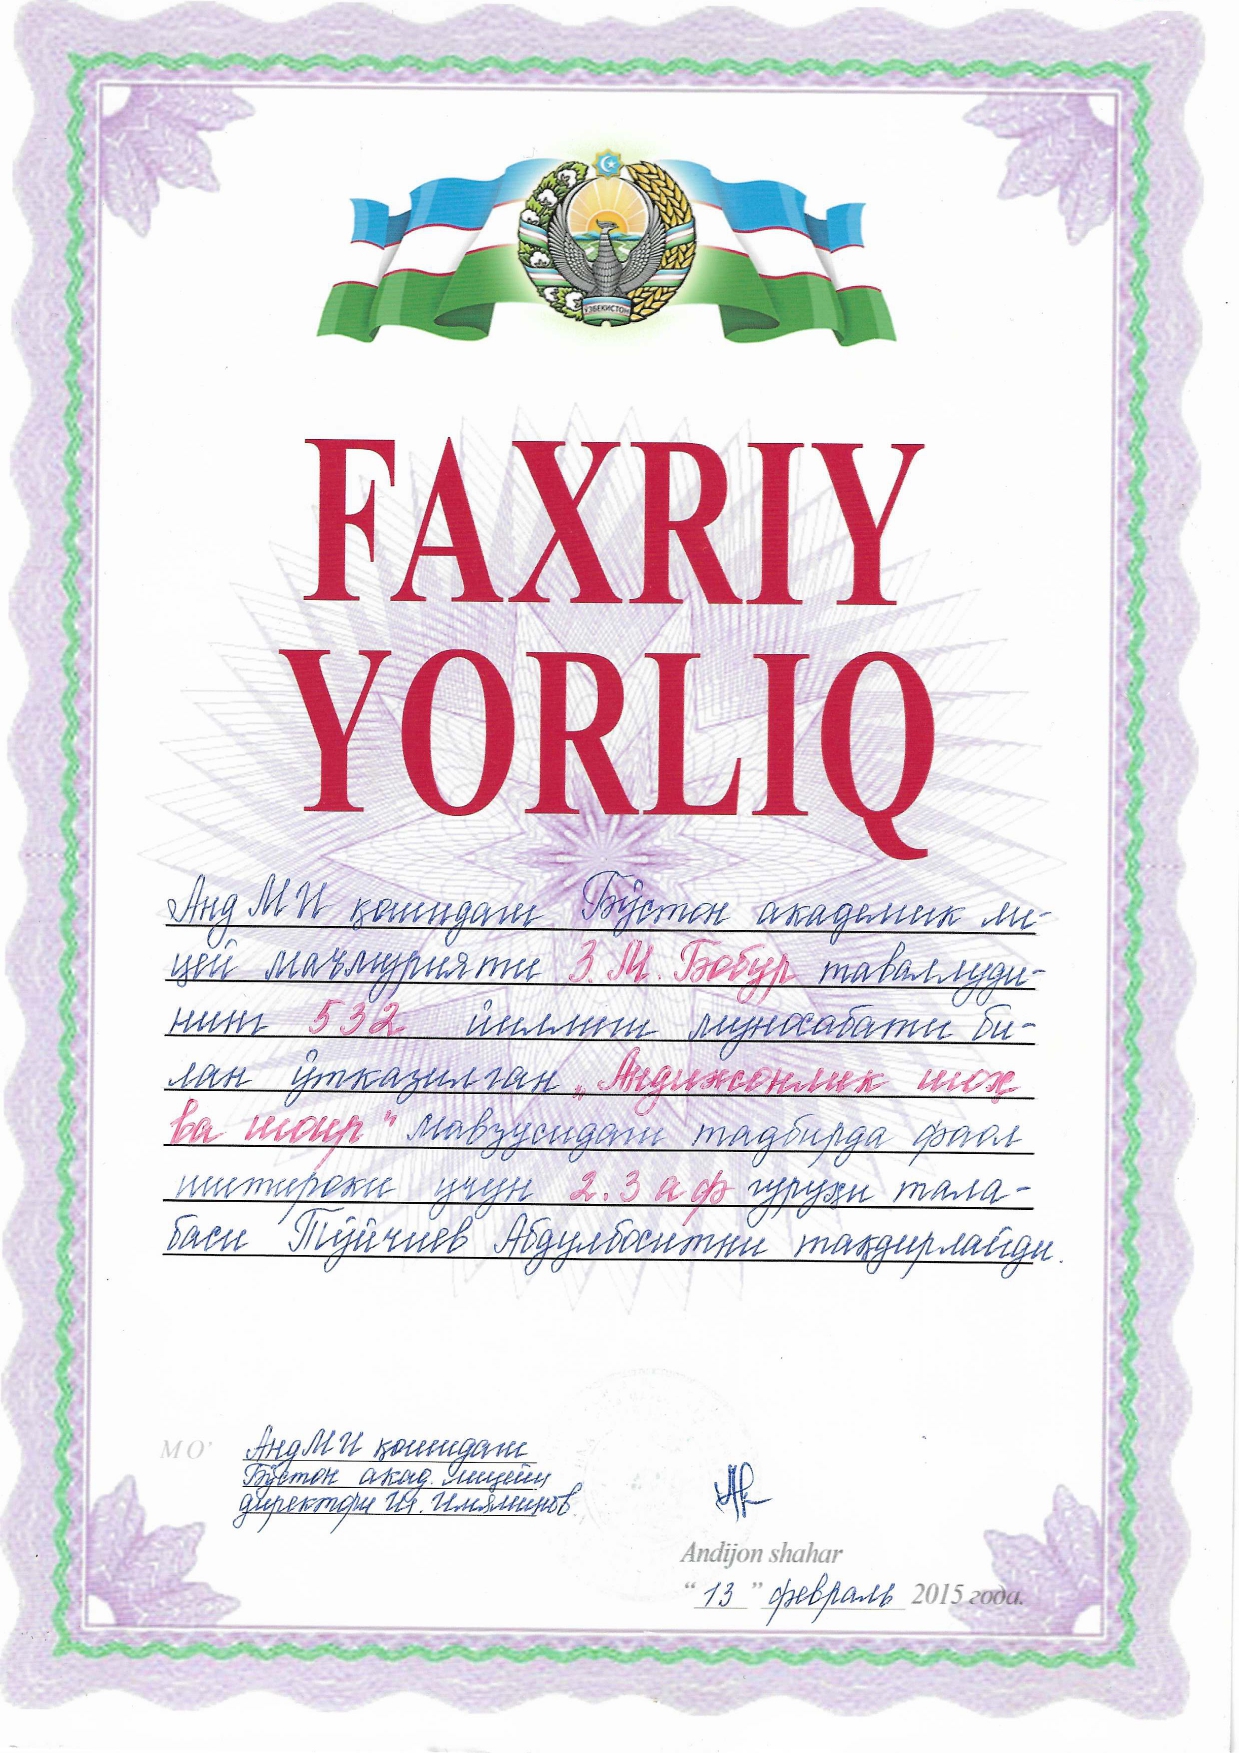 ЎЗБЕКИСТОН
FAXRIY
YORLIQ
АндМИ қошидаги Бўстон академик ли-
цей маъмурияти З.М. Бобур таваллуди-
нинг 532 йиллиги муносабати би-
лан ўтказилган „Андижонлик шоҳ
ва шоир" мавзусидаги тадбирда фаол
иштироки учун 2.3 а ф гуруҳи тала-
баси Тўйчиев Абдулбоситни тақдирлайди.
MO'
АндМИ қошидаги
Бўстон акад. лицейи
директори
Andijon shahar
“ 13 ” февраль 2015 года.